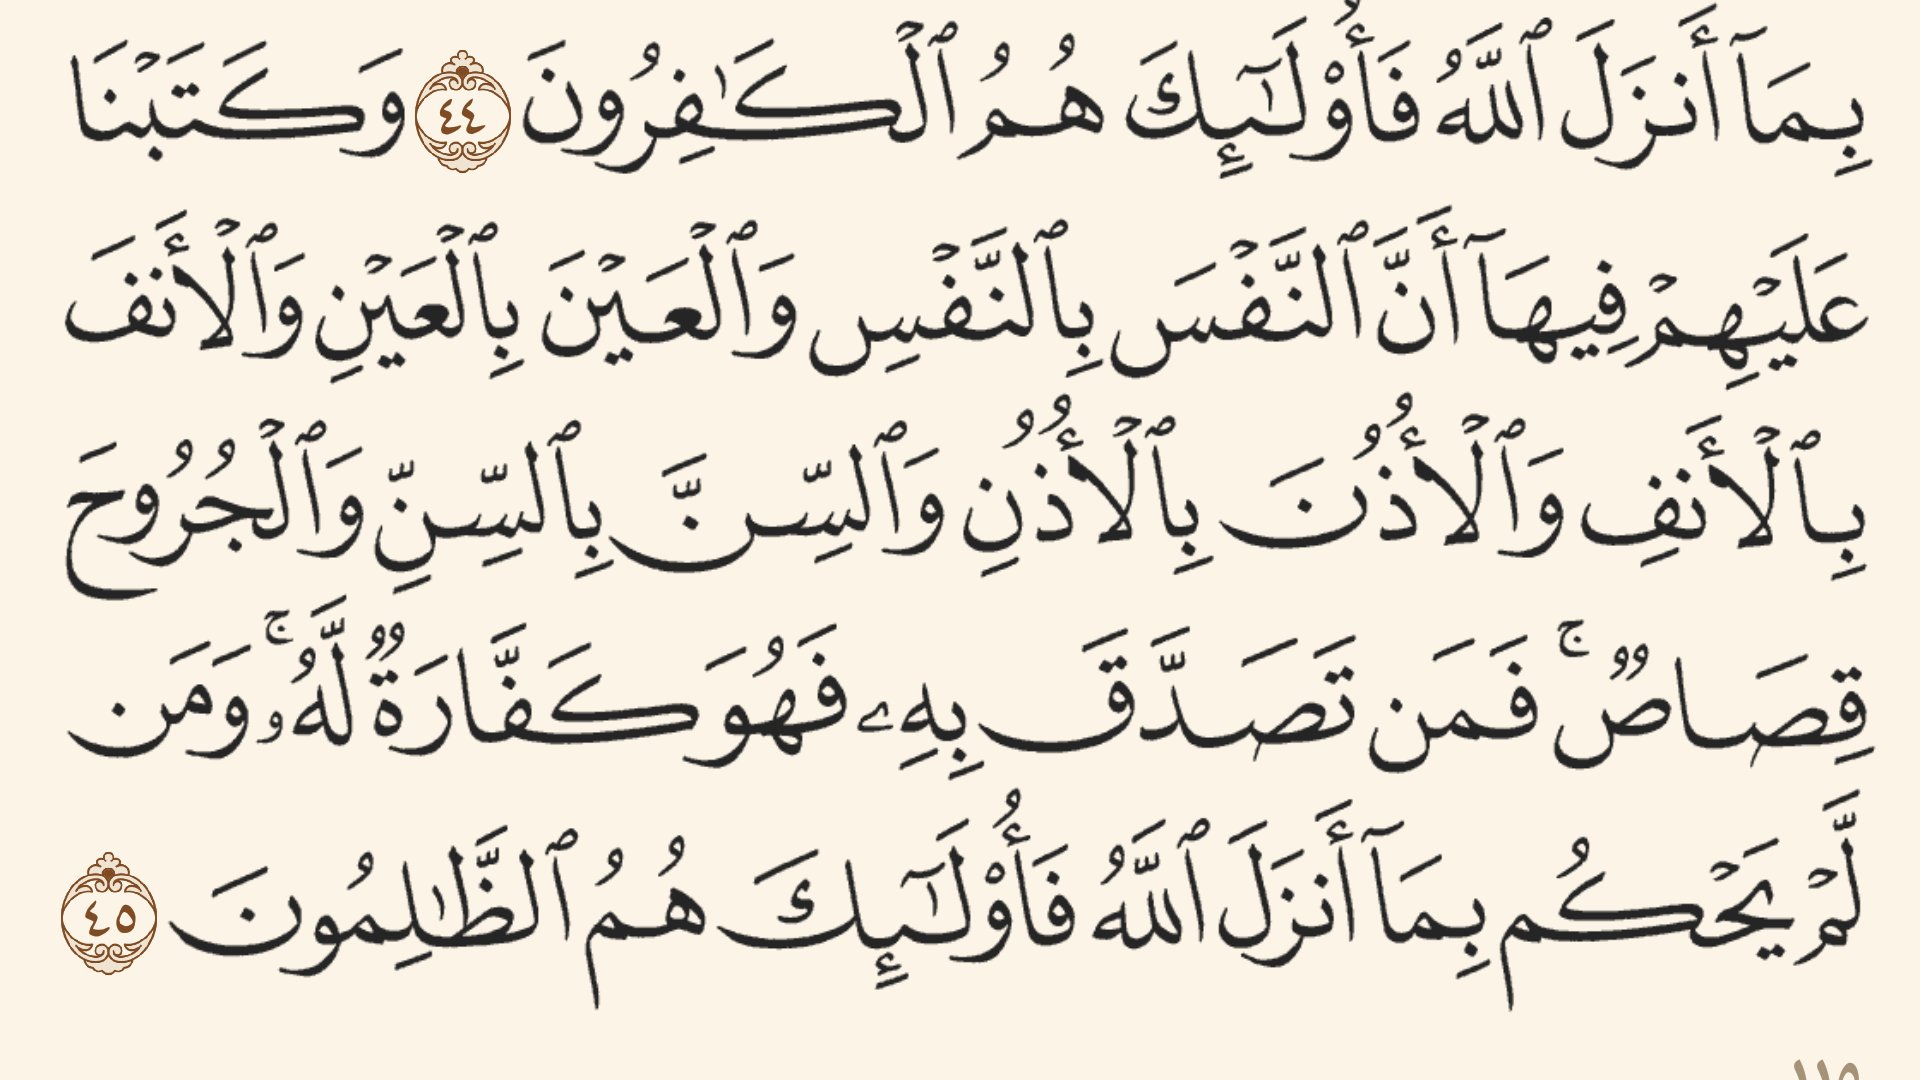 بِمَآ أَنزَلَ ٱللَّهُ فَأُو۟لَـٰٓئِكَ هُمُ ٱلْكَـٰفِرُونَ ٤٤ وَكَتَبْنَا
عَلَيْهِمْ فِيهَآ أَنَّ ٱلنَّفْسَ بِٱلنَّفْسِ وَٱلْعَيْنَ بِٱلْعَيْنِ وَٱلْأَنفَ
بِٱلْأَنفِ وَٱلْأُذُنَ بِٱلْأُذُنِ وَٱلسِّنَّ بِٱلسِّنِّ وَٱلْجُرُوحَ
قِصَاصٌ ۚ فَمَن تَصَدَّقَ بِهِۦ فَهُوَ كَفَّارَةٌ لَّهُۥ ۚ وَمَن
لَّمْ يَحْكُم بِمَآ أَنزَلَ ٱللَّهُ فَأُو۟لَـٰٓئِكَ هُمُ ٱلظَّـٰلِمُونَ ٤٥